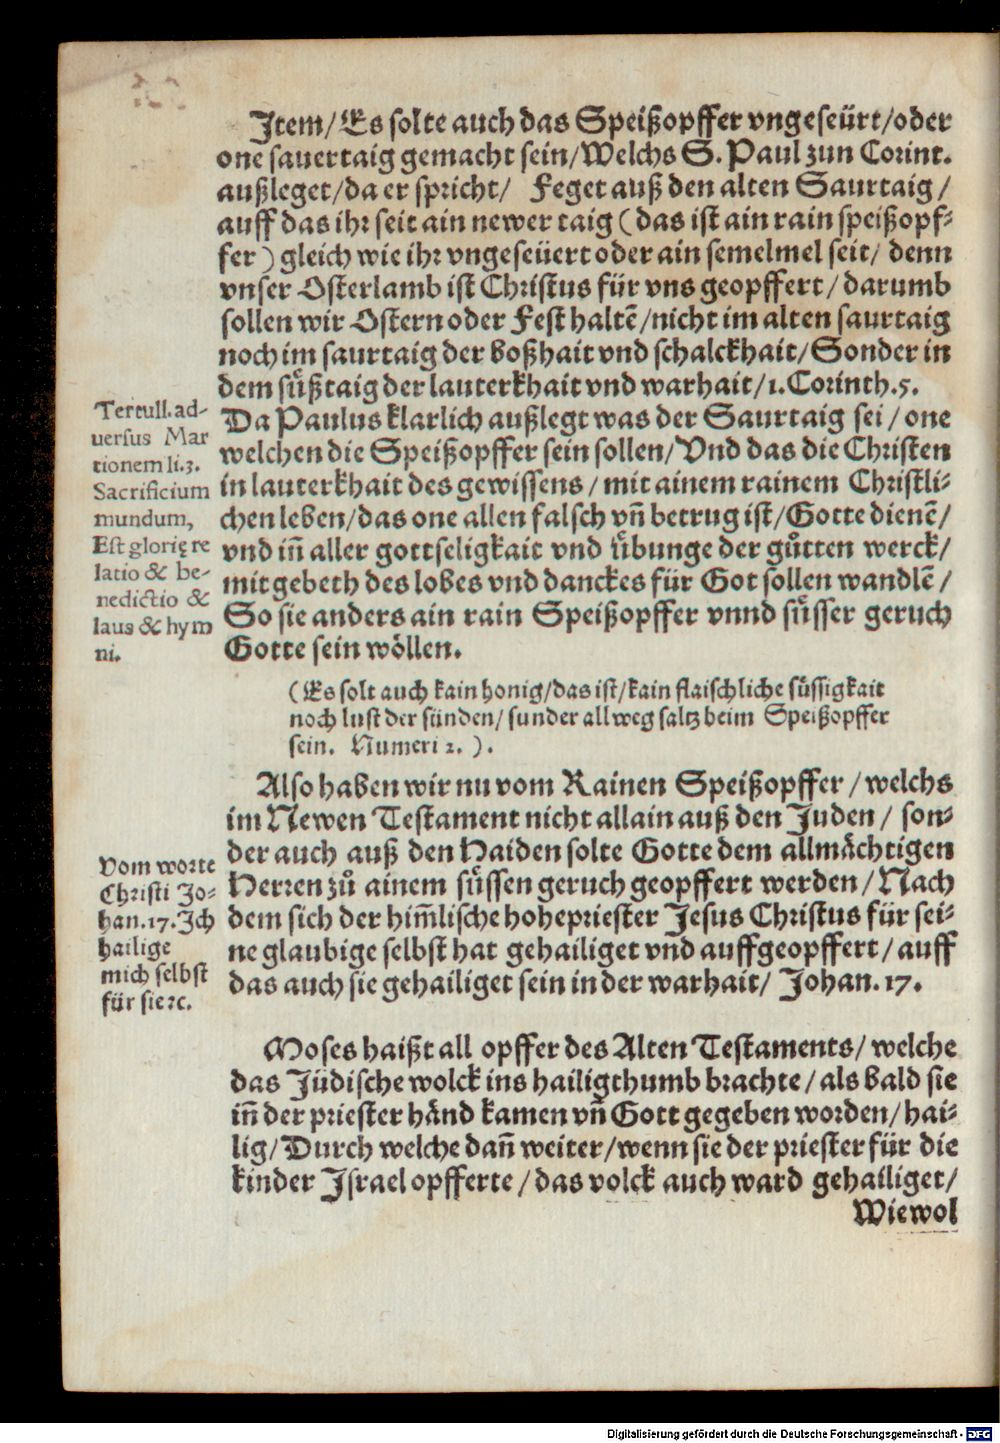 Item/Es solte auch das Speißopffer vngeseürt/oder
one sauertaig gemacht sein/Welchs S. Paul zun Corint.
außleget/da er spricht/ Feget auß den alten Saurtaig/
auff das ihr seit ain newer taig (das ist ain rain speißopf-
fer) gleich wie ihr vngeseüert oder ain semelmel seit/ denn
vnser Osterlamb ist Christus für vns geopffert/darumb
sollen wir Ostern oder Fest haltē/nicht im alten saurtaig
noch im saurtaig der boßhait vnd schalckhait/Sonder in
dem sůßtaig der lauterkhait vnd warhait/1.Corinth.5.
Da Paulus klarlich außlegt was der Saurtaig sei/one
welchen die Speißopffer sein sollen/Vnd das die Christen
in lauterkhait des gewissens/mit ainem rainem Christli-
chen leben/das one allen falsch vñ betrug ist/Gotte dienē/
vnd iñ aller gottseligkait vnd ůbunge der gůtten werck/
mit gebeth des lobes vnd danckes für Got sollen wandlē/
So sie anders ain rain Speißopffer vnnd sůsser geruch
Gotte sein wöllen.
Tertull. ad-
uersus Mar
tionem li.3.
Sacrificium
mundum,
Est glorię re
latio & be-
nedictio &
laus & hym
ni.
(Es solt auch kain honig/das ist/kain flaischliche sůssigkait
noch lust der sünden/sunder allweg saltz beim Speißopffer
sein. Numeri 2.).
Also haben wir nu vom Rainen Speißopffer/welchs
im Newen Testament nicht allain auß den Juden/ son-
der auch auß den Haiden solte Gotte dem allmächtigen
Herren zů ainem sůssen geruch geopffert werden/Nach
dem sich der him̄lische hohepriester Jesus Christus für sei-
ne glaubige selbst hat gehailiget vnd auffgeopffert/auff
das auch sie gehailiget sein in der warhait/ Johan.17.
Vom worte
Christi Jo-
han.17. Ich
hailige
mich selbst
für sie ꝛc.
Moses haißt all opffer des Alten Testaments/welche
das Jüdische wolck ins hailigthumb brachte/als bald sie
iñ der priester händ kamen vñ Gott gegeben worden/hai-
lig/Durch welche dañ weiter/wenn sie der priester für die
kinder Israel opfferte/das volck auch ward gehailiget/
Wiewol
Digitalisierung gefördert durch die Deutsche Forschungsgemeinschaft - DFG